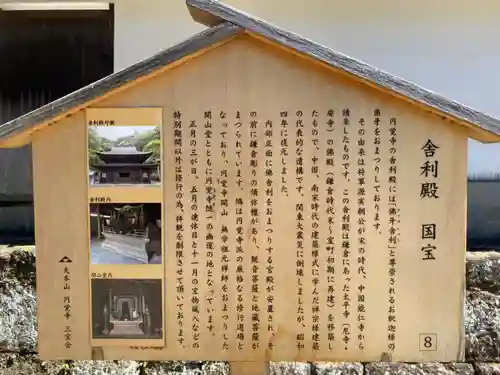 舎利殿 国宝
円覚寺の舎利殿には「佛牙舎利」と尊崇されるお釈迦様の
佛牙をおまつりしております。
その由来は将軍源実朝公が宋の時代、中国能仁寺から
請来したものです。この舎利殿は鎌倉にあった太平寺（尼寺・
廃寺）の佛殿（鎌倉時代末〜室町初期に再建）を移築し
たもので、中国、南宋時代の建築様式に学んだ禅宗様建築
の代表的な遺構です。関東大震災に倒壊しましたが、昭和
四年に復元しました。
内部正面に佛牙舎利をおまつりする宮殿が安置され、そ
の前に鎌倉彫りの須弥壇があり、観音菩薩と地蔵菩薩が
まつられています。隣は円覚寺派の厳格なる修行道場と
なっており、円覚寺開山 無学祖元禅師をおまつりした
開山堂とともに円覚寺随一の幽邃の地となっています。
正月の三が日、五月の連休日と十一月の宝物風入などの
特別期間以外は修行の為、拝観を制限させて頂いております。
舎利殿外観
舎利殿内
開山堂内
大本山 円覚寺 三宝会
8